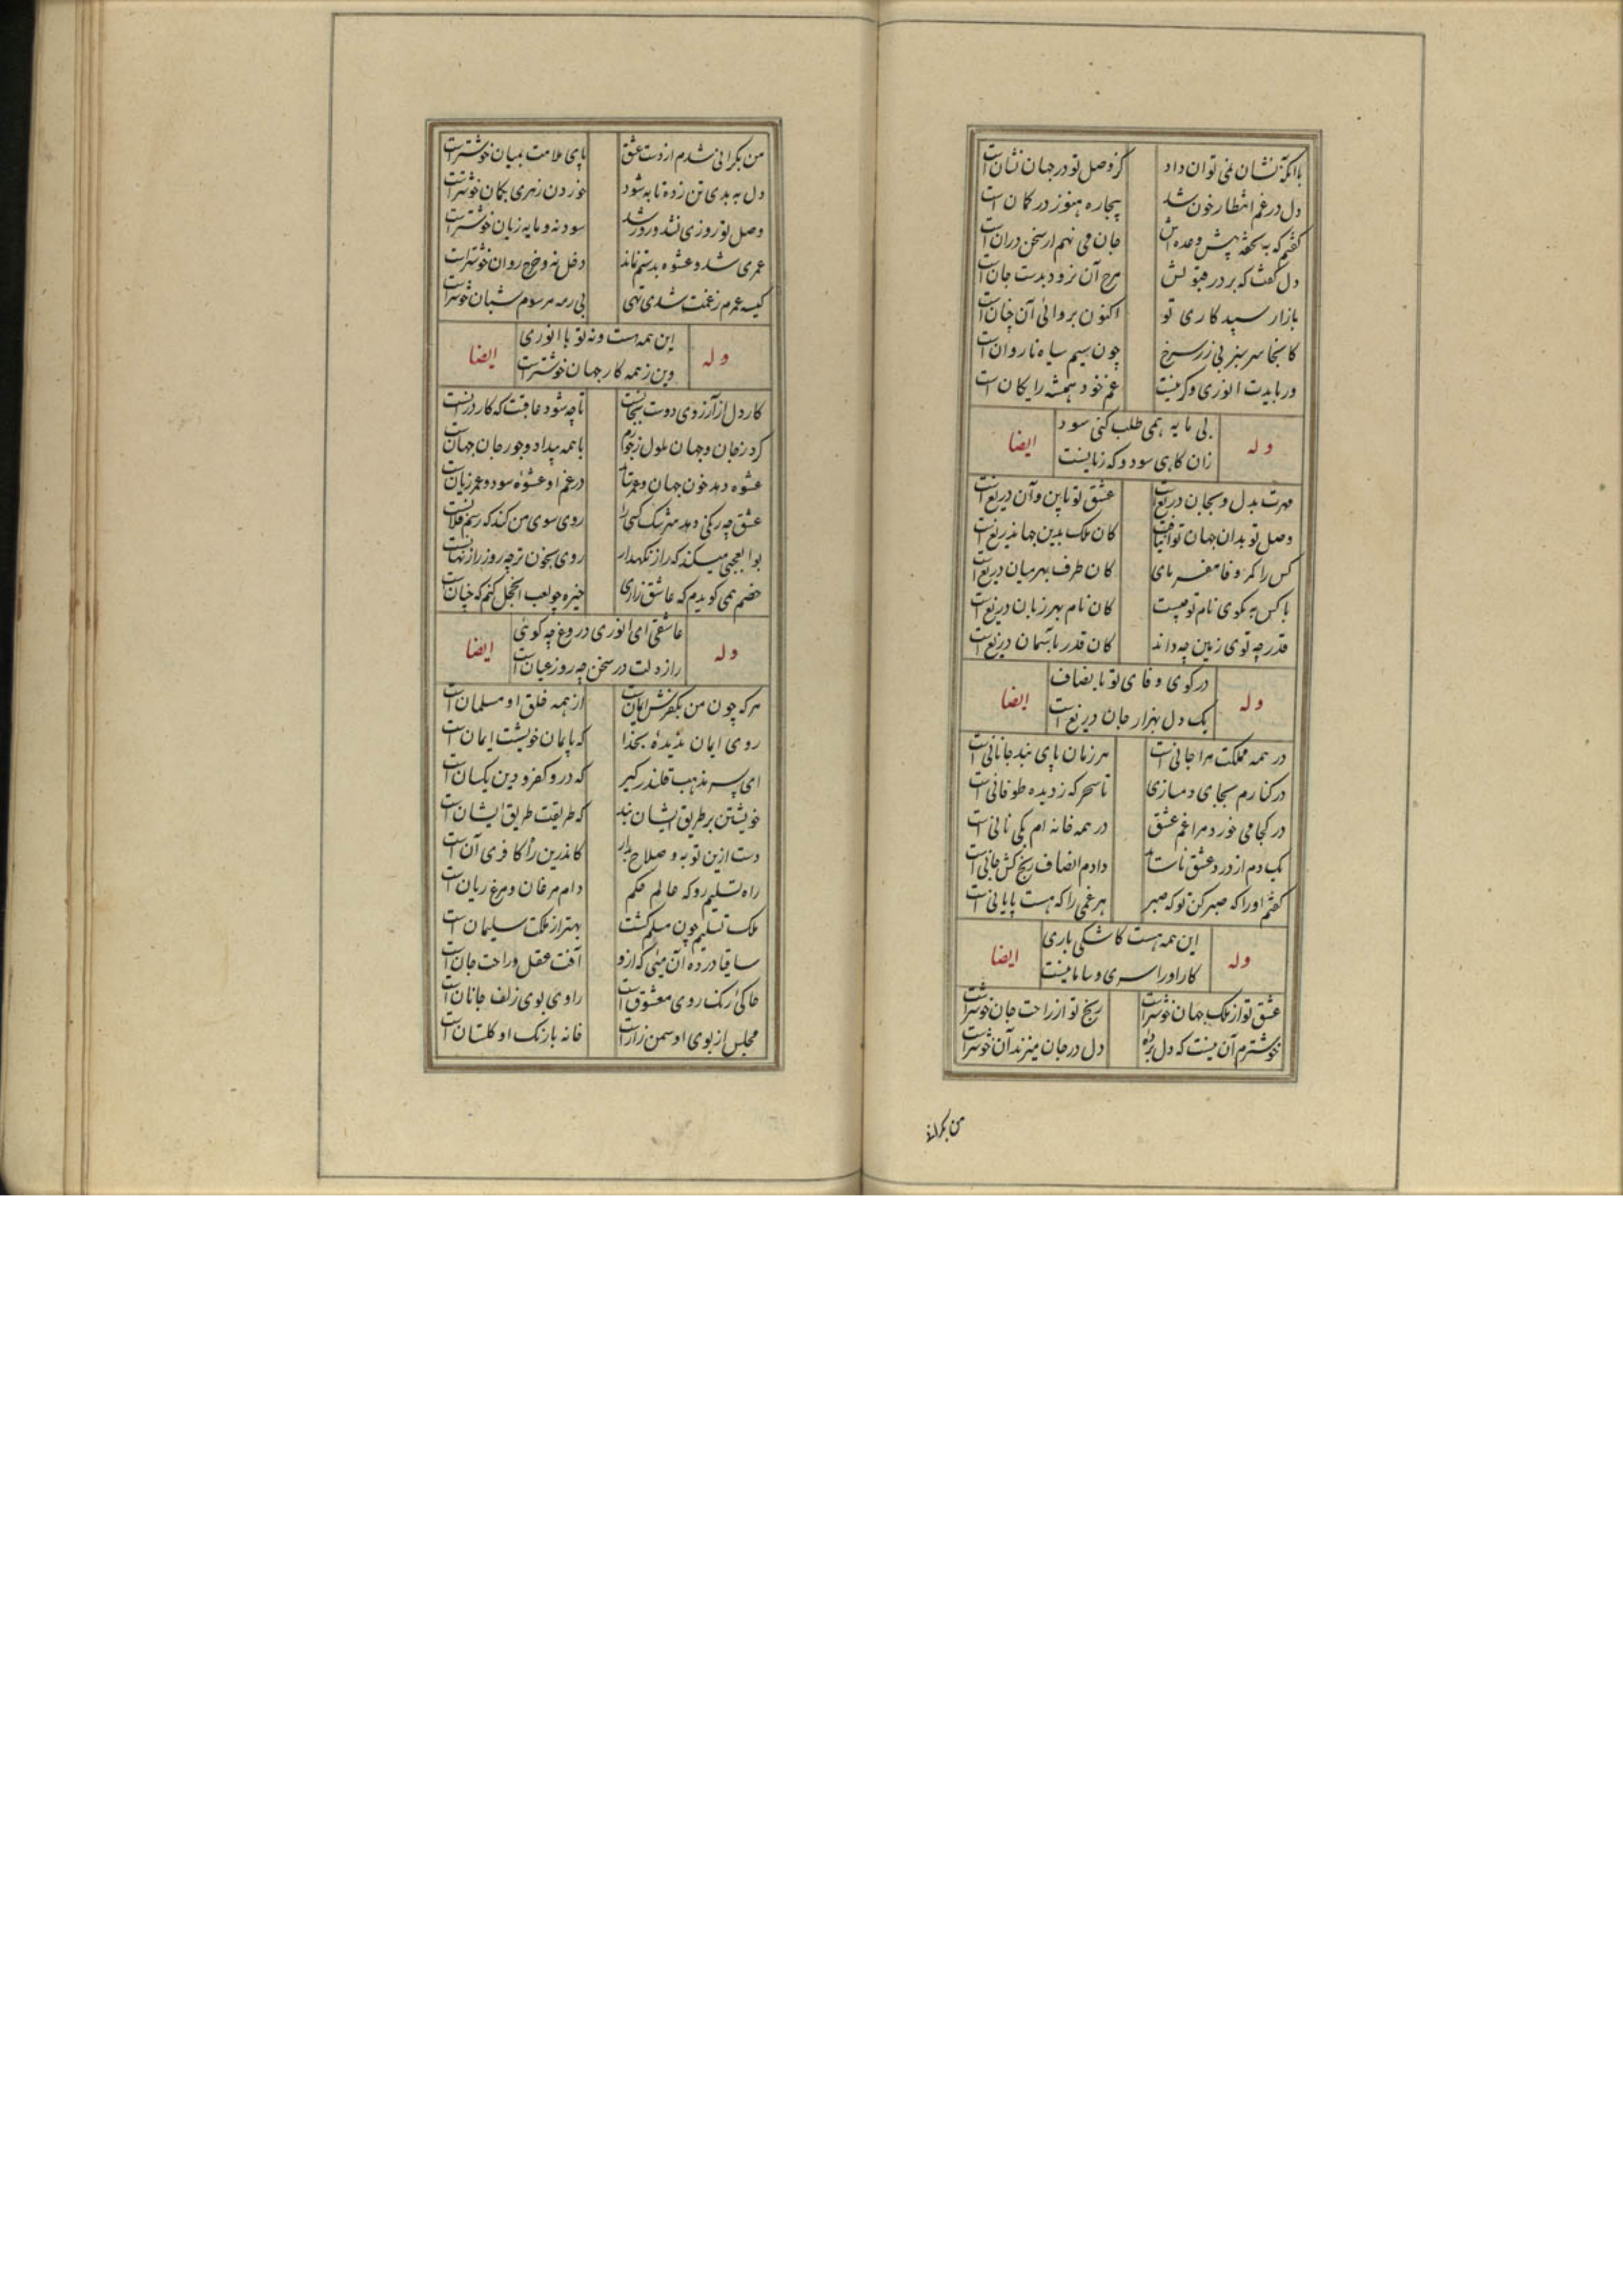 با آنکه نشان نمی توان داد کز وصل تو در جهان نشان است
دل در غم انتظار خون شد بیچاره هنوز در کمان است
گفتم که به تحفه پیش وعده اش جان می نهم ار سخن در آن است
دل گفت که بر در قبولش هرچ آن نرود بدست جان است
بازار سپید کاری تو اکنون بروائی آن چنان است
کانجا سر سبز بی زر سرخ چون سیم سیاه ناروان است
ور بایدت انوری وکر نیست غم خود همیشه رایکان است
وله بی مایه همی طلب کنی سود ایضا
زان کاهی سود و که زیانیست
مهرت بدل و بجان دریغ است عشق تو باین و آن دریغ است
وصل تو بدان جهان توان یافت کان ملک بدین جهان دریغ است
کس را کمر وفا مفرمای کان طرف بهر میان دریغ است
با کس به مکوی نام تو چیست کان نام بهر زبان دریغ است
قدر چه توی زمین چه داند کان قدر بآسمان دریغ است
وله در کوی وفای تو بانصاف ایضا
یک دل بهزار جان دریغ است
در همه مملکت مرا جانی است هر زمان پای بند جانانی است
در کنارم بجای دمسازی تا سحر که ز دیده طوفانی است
در کجا می خورد مرا غم عشق در همه خانه ام یکی نانی است
یک دم از درد عشق ناساید دادم انصاف رنج کش جانی است
گفتم او را که صبر کن تو که صبر هر غمی را که هست پایانی است
وله این همه هست کاشکی باری ایضا
کار او را سری و سامانیست
عشق تو از ملک جهان خوشتر است رنج تو از راحت جان خوشتر است
خوشترم آن نیست که دل برده دل در جان میزند آن خوشتر است
من بکرانی
من بکرانی شدم از دست عشق پای ملامت بمیان خوشتر است
دل به بدی تن زده تا به شود خوردن زهری بکمان خوشتر است
وصل تو روزی نشد و روز شد سود نه و مایه زیان خوشتر است
عمری شد و عشوه بدستم نماند دخل نه و خرج روان خوشتر است
کیسه عمرم ز غمت شد تهی بی رمه مرسوم شبان خوشتر است
وله این همه هست و نه تو با انوری ایضا
وین ز همه کار جهان خوشتر است
کار دل از آرزوی دوست بجانست تا چه شود عاقبت که کار در آنست
کرد ز جان و جهان ملول بجورم با همه بیداد و جور جان جهانست
عشوه دهد خون جهان و عمر ستاند در غم او عشوه سود و عمر زیانست
عشق چه رنگی دهد سرشک کسی را روی سوی من کند که رسم فلانست
بوالعجبی میکند که راز نگهدار روی بخون تر چه روز راز نهانست
خصم همی گویدم که عاشق زاری خیره چو لعب الخجل کنم که چنانست
وله عاشقی ای انوری دروغ چه گوئی ایضا
راز دلت در سخن چه روز عیان است
هر که چون من بکفرش ایمان است از همه خلق او مسلمان است
روی ایمان ندیده بخدا که بایمان خویشت ایمان است
ای پسر مذهب قلندر گیر که در و کفر و دین یکسان است
خویشتن بر طریق ایشان بند که طریقت طریق ایشان است
دست ازین توبه و صلاح بدار کاندرین راه کافری آن است
راه تسلیم رو که عالم حکم دام مرغان و مرغ بریان است
ملک تسلیم چون مسلم گشت بهتر از ملکت سلیمان است
ساقیا در ده آن میئی که ازو آفت عقل و راحت جان است
حاکئ رنگ روی معشوق است راوی بوی زلف جانان است
مجلس از بوی او سمن زار است خانه با رنگ او گلستان است